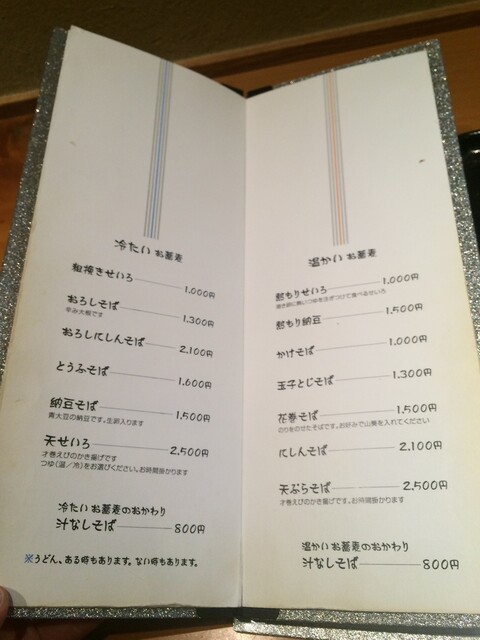 冷たい お蕎麦
粗挽きせいろ 1,000円
おろしそば 1,300円
辛み大根です
おろしにしんそば 2,100円
とうふそば 1,600円
納豆そば 1,500円
青大豆の納豆です。生卵入ります
天せいろ 2,500円
才巻えびのかき揚げです
つゆ(温/冷)をお選びください。お時間掛かります
冷たい お蕎麦のおかわり
汁なしそば 800円
※うどん、ある時もあります。ない時もあります。
温かい お蕎麦
もりせいろ 1,000円
もり納豆 1,500円
かけそば 1,000円
玉子とじそば 1,300円
花巻そば 1,500円
のりをのせたそばです。お好みで山葵を入れてください
にしんそば 2,100円
天ぷらそば 2,500円
才巻えびのかき揚げです。お時間掛かります
温かい お蕎麦のおかわり
汁なしそば 800円